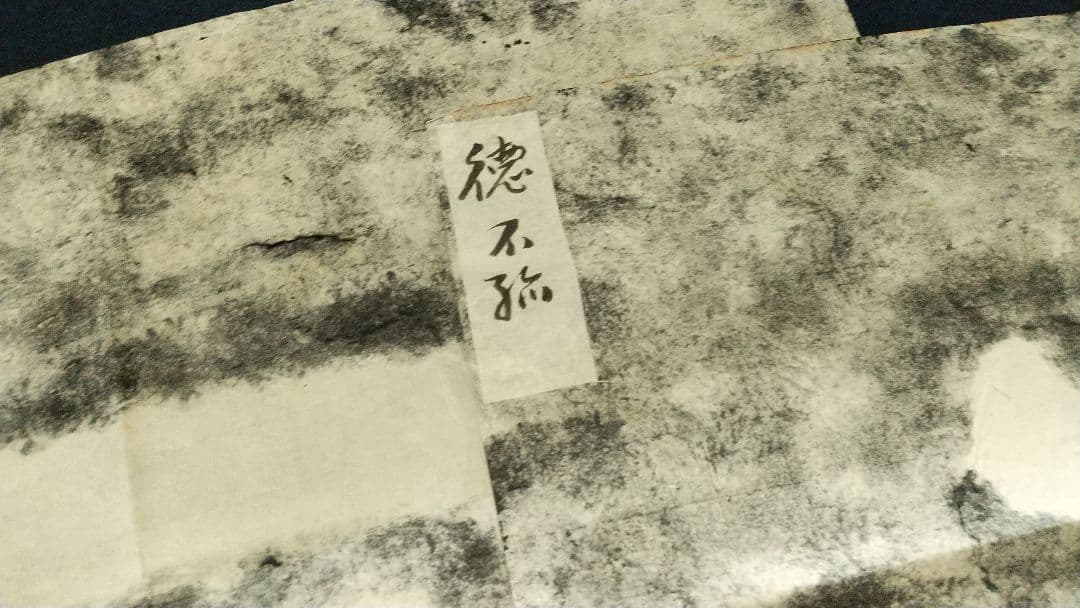 德不孤